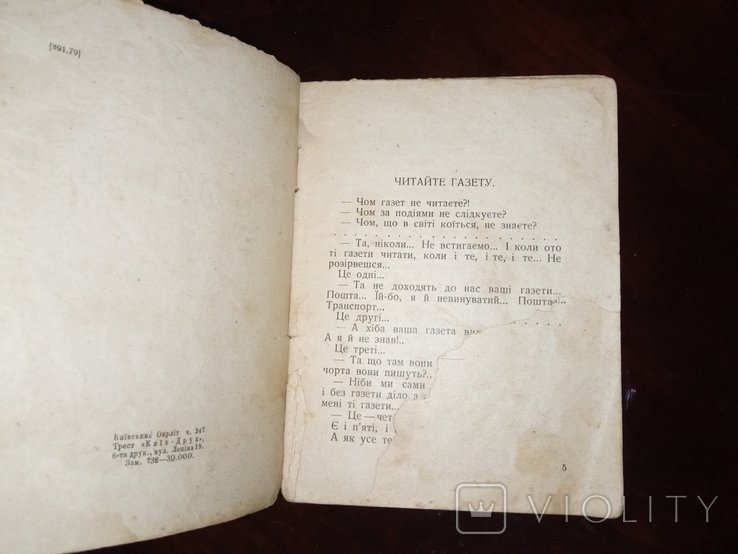 [891.79]
Київський Окрліт ч. 247
Трест „Київ-Друк",
6-та друк., вул. Леніна 19.
Зам. 732—30.000.
ЧИТАЙТЕ ГАЗЕТУ.
— Чом газет не читаєте?!
— Чом за подіями не слідкуєте?
— Чом, що в світі коїться, не знаєте?
— Та, ніколи... Не встигаємо... І коли ото
ті газети читати, коли і те, і те, і те... Не
розірвешся...
Це одні...
— Та не доходять до нас ваші газети...
Пошта... Їй-бо, я й невинуватий... Пошта!..
Транспорт...
Це другі...
— А хіба ваша газета
А я й не знав!..
Це треті...
— Та що там вони
чорта вони пишуть?..
— Ніби ми сами
і без газети діло
мені ті газети...
— Це — чет
Є і п'яті, і
А як усе те
5
VIOLITY